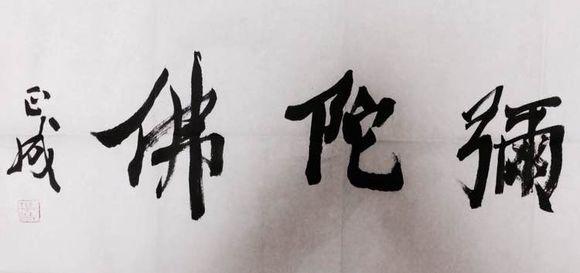 彌陀佛
正成